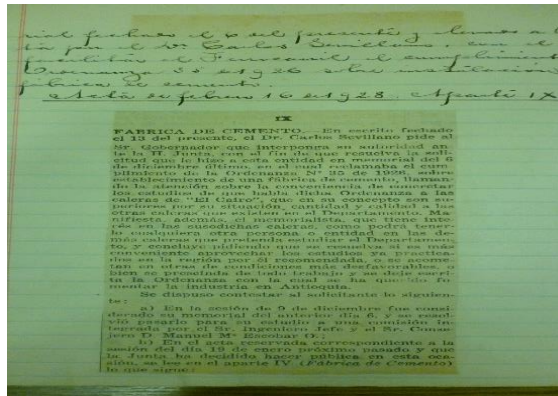 fechado el 6 del presente y elevado a
por el Dr. Carlos Sevillano, con el
el Ferrocarril el cumplimiento
Ordenanza 35 de 1926 sobre instalación
fábrica de cemento.
Acta de febrero 16 de 1928. Aparte IX
IX
FABRICA DE CEMENTO.—En escrito fechado
el 13 del presente, el Dr. Carlos Sevillano pide al
Sr. Gobernador que interponga su autoridad an-
te la H. Junta, con el fin de que resuelva la soli-
citud que le hizo a esta entidad en memorial del 6
de diciembre último, en el cual reclamaba el cum-
plimiento de la Ordenanza Nº 35 de 1926, sobre
establecimiento de una fábrica de cemento, llaman-
do la atención sobre la conveniencia de concretar
los estudios de que habla dicha Ordenanza a las
caleras de "El Cairo", que en su concepto son su-
periores por su situación, cantidad y calidad a las
otras caleras que existen en el Departamento. Ma-
nifiesta, además, el memorialista, que tiene inte-
rés en las susodichas caleras, como podrá tener-
lo cualquiera otra persona o entidad en las de-
más caleras que pretenda estudiar el Departamen-
to, y concluye pidiendo que se resuelva si es más
conveniente aprovechar los estudios ya practica-
dos en la región por él recomendada, o se acome-
tan en otras de condiciones más desfavorables, o
bien se prescinda de todo trabajo y se deje escri-
ta la Ordenanza con la cual se ha querido fo-
mentar la industria en Antioquia.
Se dispuso contestar al solicitante lo siguien-
te:
a) En la sesión de 9 de diciembre fue consi-
derado su memorial del anterior día 6, y se resol-
vió pasarlo para su estudio a una comisión in-
tegrada por el Sr. Ingeniero Jefe y el Sr. Conse-
jero D. Manuel M. Escobar O.
b) En el acta reservada correspondiente a la
sesión del día 19 de enero próximo pasado y que
la Junta ha decidido hacer pública en esta oca-
sión, se lee en el aparte IV. (Fábrica de Cemento)
lo que sigue: